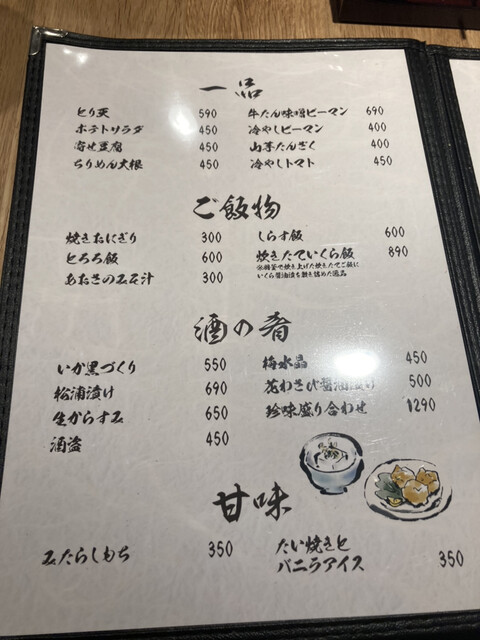 一品
とり天 590
ポテトサラダ 450
寄せ豆腐 450
ちりめん大根 450
牛たん味噌ピーマン 690
冷やしピーマン 400
山芋たんざく 400
冷やしトマト 450
ご飯物
焼きおにぎり 300
とろろ飯 600
あおさのみそ汁 300
しらす飯 600
炊きたていくら飯 890
いくら醤油漬を敷き詰めた逸品
酒の肴
いか黒づくり 550
松浦漬け 690
生からすみ 650
酒盗 450
梅水晶 450
花わさび醤油漬け 500
珍味盛り合わせ 1290
甘味
みたらしもち 350
たい焼きと
バニラアイス 350